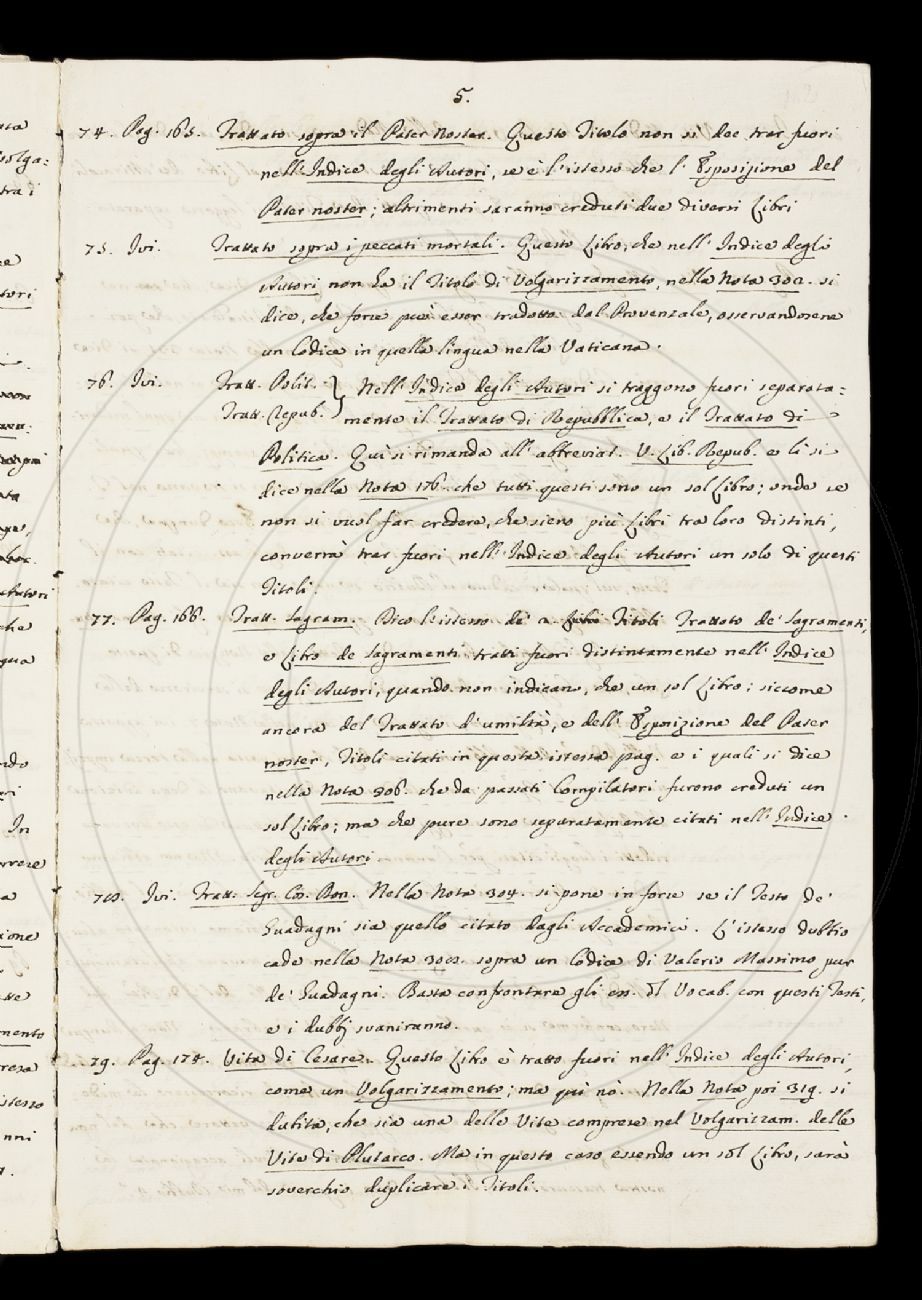 5.
74. Pag. 165. Trattato sopra il Pater Noster. Questo Titolo non si dee trar fuori
nell'Indice degli Autori, se è l'istesso che l'Esposizione del
Pater noster; altrimenti saranno creduti due diversi Libri
75. Ivi. Trattato sopra i peccati mortali. Questo Libro, che nell'Indice degli
Autori non ha il Titolo di Volgarizzamento, nella Nota 302. si
dice, che forse può esser tradotto dal Provenzale, osservandosene
un Codice in quella lingua nella Vaticana.
76. Ivi. Tratt. Polit. } Nell'Indice degli Autori si traggono fuori separata=
Tratt. Repub. } mente il Trattato di Repubblica, e il Trattato di
Politica. Quì si rimanda all'abbreviat. V. Lib. Repub. e lì si
dice nella Nota 176. che tutti questi sono un sol Libro; onde se
non si vuol far credere, che sieno più Libri tra loro distinti,
converrà trar fuori nell'Indice degli Autori un solo di questi
Titoli.
77. Pag. 166. Tratt. Sagram. Dico l'istesso de' 2. Titoli Trattato de' Sagramenti,
e Libro de Sagramenti tratti fuori distintamente nell'Indice
degli Autori, quando non indicano, che un sol Libro; siccome
ancora del Trattato d'umiltà, e dell'Esposizione del Pater
noster, Titoli citati in questa istessa pag. e i quali si dice
nella Nota 306. che da passati Compilatori furono creduti un
sol Libro; ma che pure sono separatamente citati nell'Indice
degli Autori.
78. Ivi. Tratt. Segr. Cos. Don. Nella Nota 304. si pone in forse se il Testo de'
Guadagni sia quello citato dagli Accademici. L'istesso dubbio
cade nella Nota 308. sopra un Codice di Valerio Massimo pur
de' Guadagni. Basta confrontare gli es. del Vocab. con questi Testi,
e i dubbj svaniranno.
79. Pag. 174. Vita di Cesare. Questo Libro è tratto fuori nell'Indice degli Autori,
come un Volgarizzamento; ma quì nò. Nella Nota poi 319. si
dubita, che sia una delle Vite comprese nel Volgarizzam. delle
Vite di Plutarco. Ma in questo caso essendo un sol Libro, sarà
soverchio duplicare i Titoli.